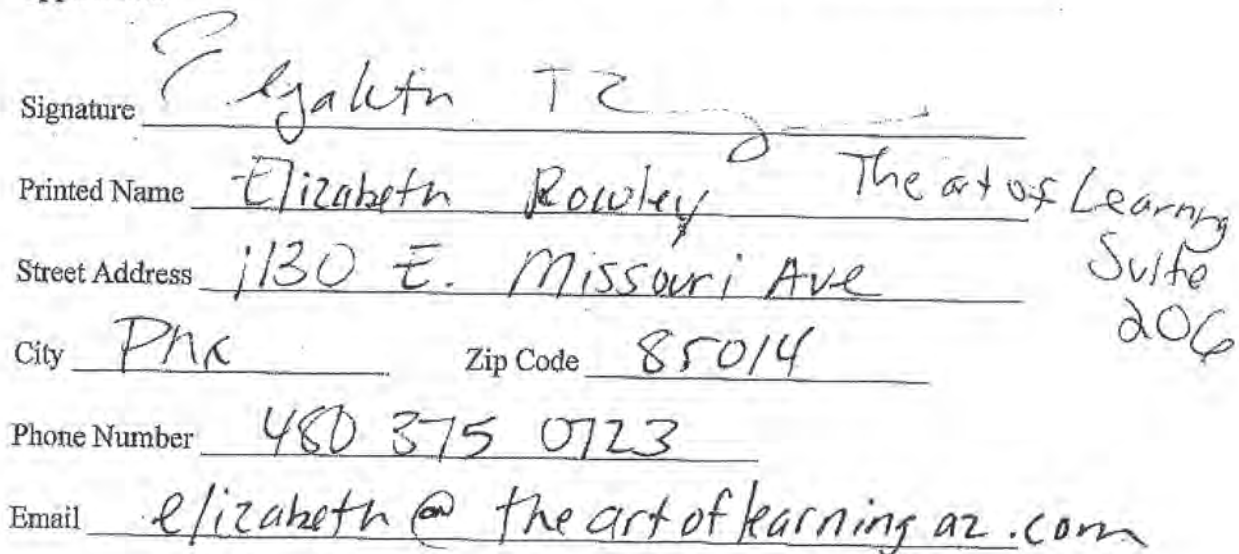 Signature
Printed Name Elizabeth Rowley The art of Learning
Street Address 1130 E. Missouri Ave Suite
206
City Phx Zip Code 85014
Phone Number 480 375 0723
Email elizabeth@theartoflearningaz.com